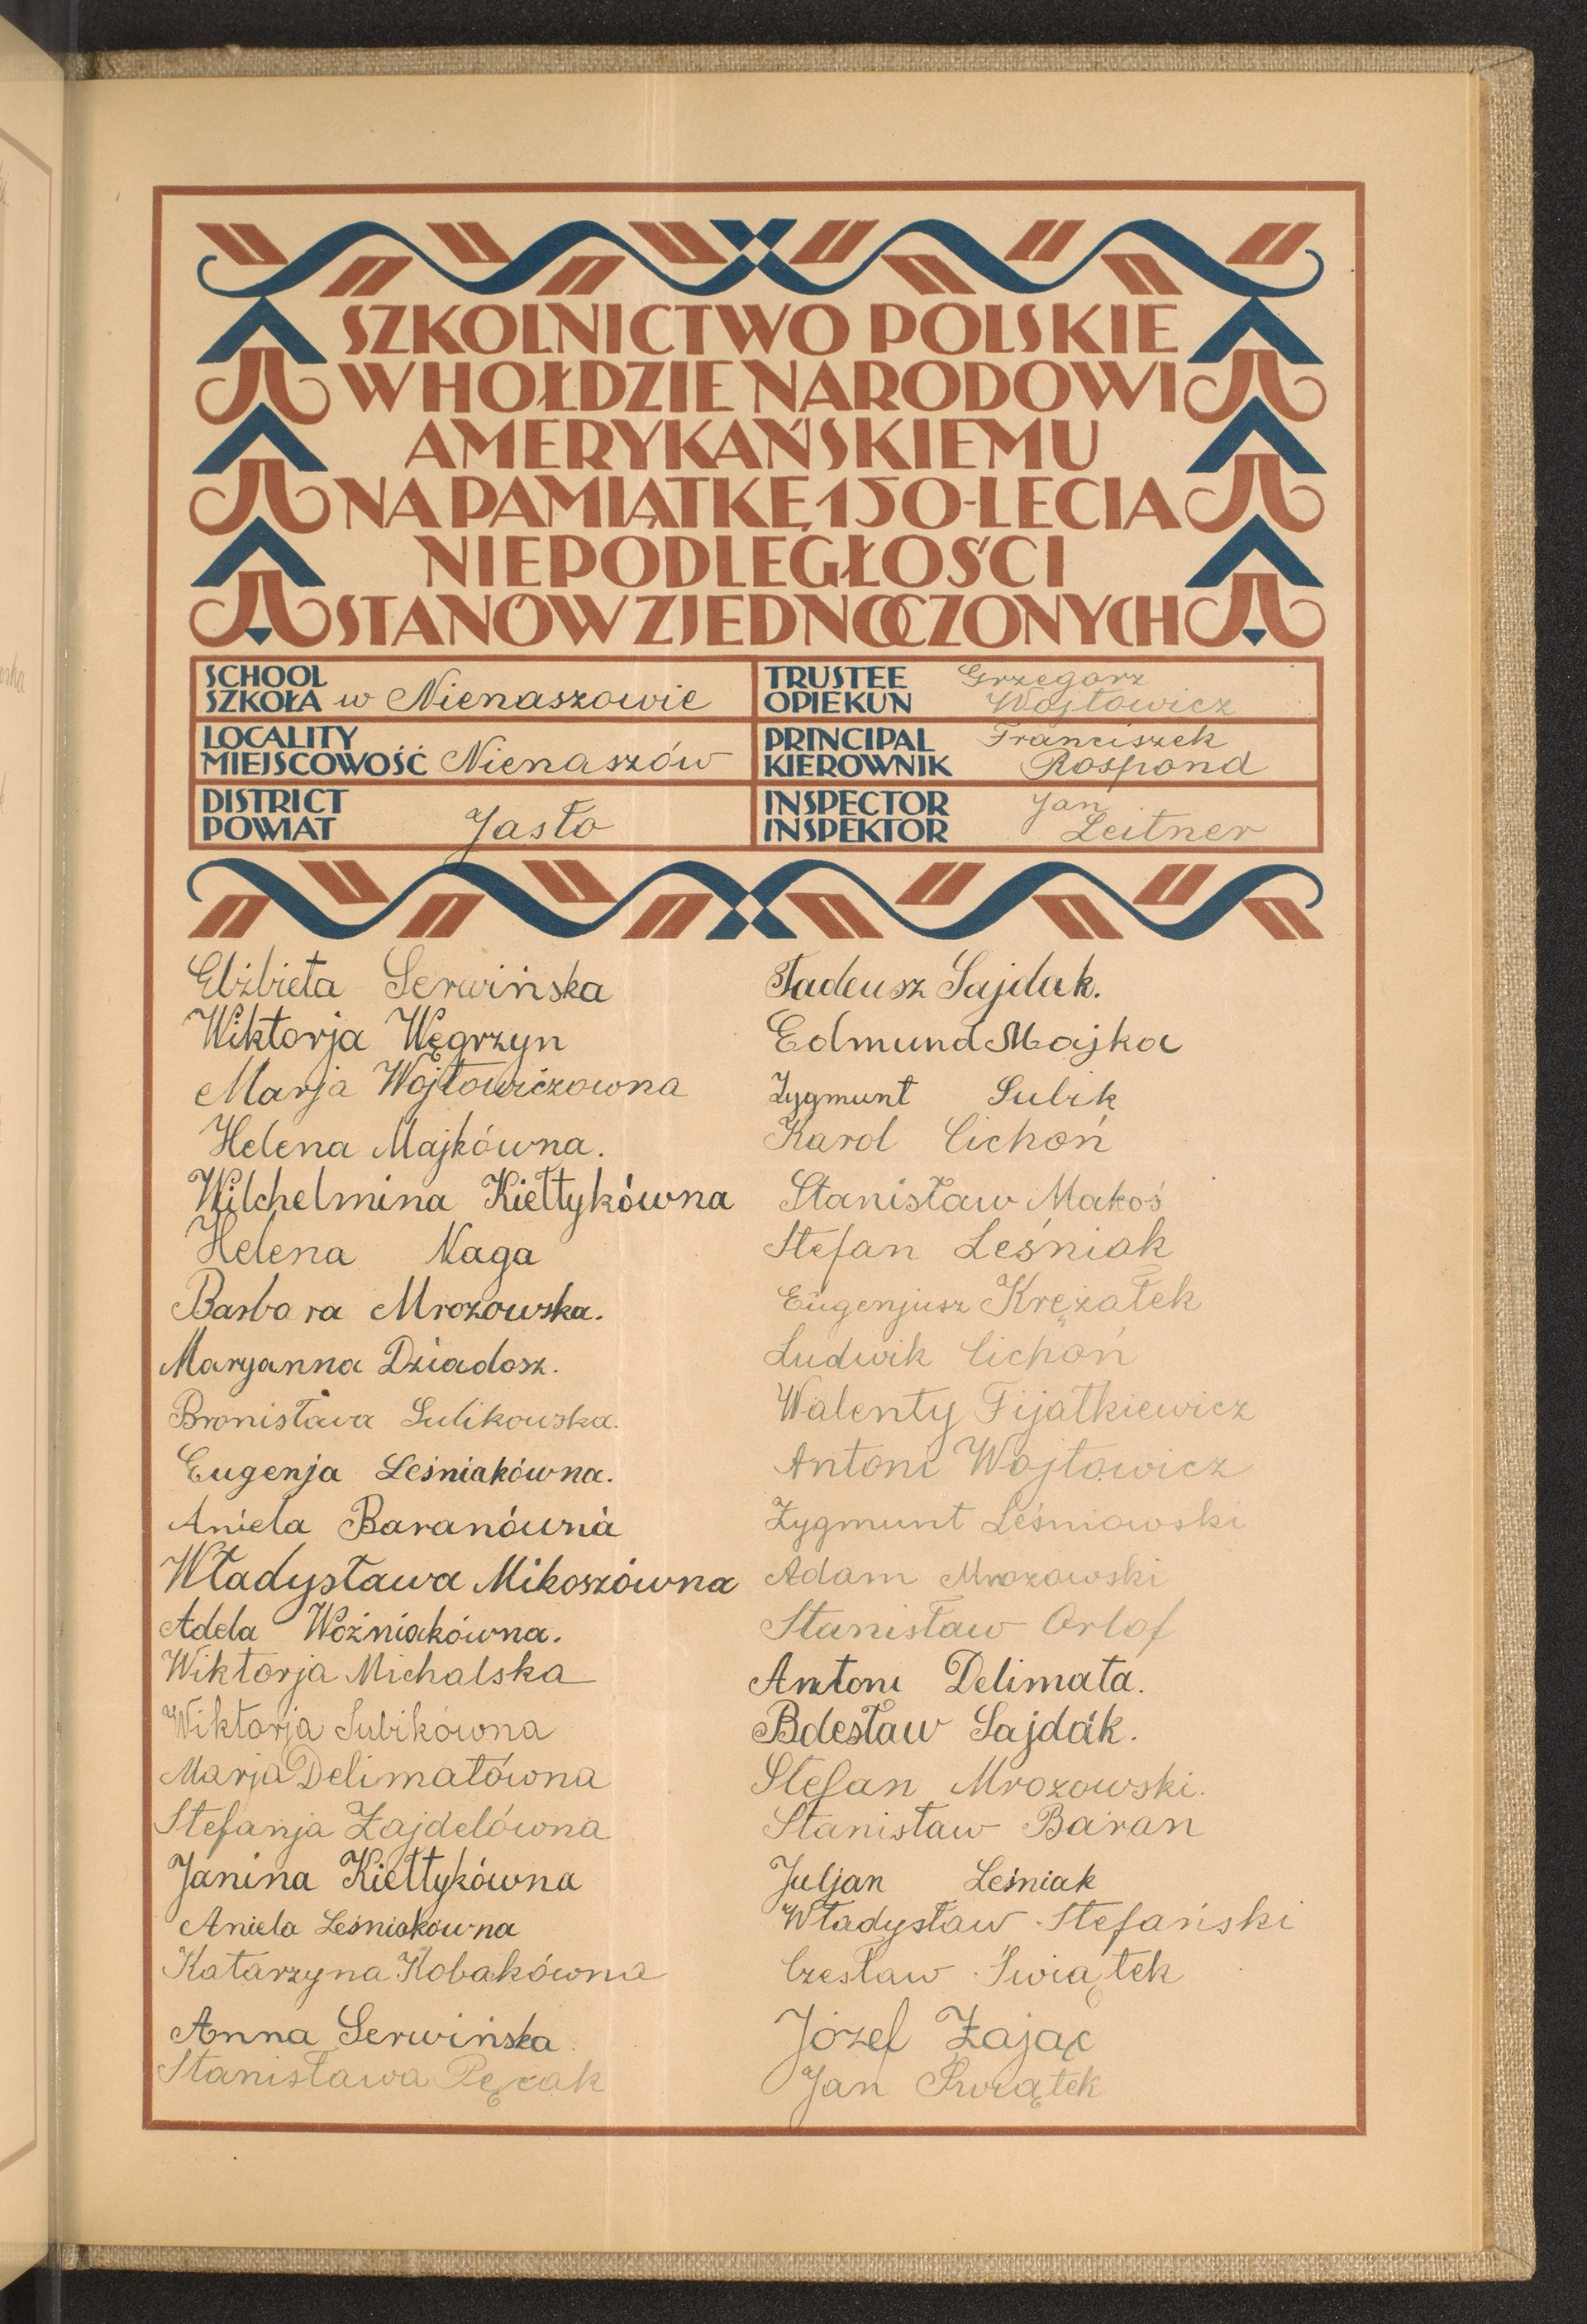 SZKOLNICTWO POLSKIE
W HOŁDZIE NARODOWI
AMERYKAŃSKIEMU
NA PAMIĄTKĘ 150-LECIA
NIEPODLEGŁOŚCI
STANÓW ZJEDNOCZONYCH
SCHOOL
SZKOŁA w Nienaszowie
TRUSTEE
OPIEKUN
Grzegorz
Wojtowicz
LOCALITY
MIEJSCOWOŚĆ Nienaszów
PRINCIPAL
KIEROWNIK
Franciszek
Rospond
DISTRICT
POWIAT Jasło
INSPECTOR
INSPEKTOR
Jan
Leitner
Elżbieta Serwińska
Wiktorja Węgrzyn
Marja Wojtowiczowna
Helena Majkówna.
Wilchelmina Kiełtykówna
Helena Naga
Barbara Mrozowska.
Maryanna Dziadosz.
Bronisława Sulikowska.
Eugenja Leśniakówna.
Aniela Baranówna
Władysława Mikoszówna
Adela Woźniakówna.
Wiktorja Michalska
Wiktorja Subikówna
Marja Delimatówna
Stefanja Zajdelówna
Janina Kiełtykówna
Aniela Leśniakówna
Katarzyna Kobakówna
Anna Serwińska
Stanisława Pęcak
Tadeusz Sajdak.
Edmund Majka
Zygmunt Subik
Karol Cichoń
Stanisław Makoś
Stefan Leśniak
Eugenjusz Krężałek
Ludwik Cichoń
Walenty Fijałkiewicz
Antoni Wojtowicz
Zygmunt Leśniowski
Adam Mrozowski
Stanisław Orlof
Antoni Delimata.
Bolesław Sajdak.
Stefan Mrozowski.
Stanisław Baran
Juljan Leśniak
Władysław Stefański
Czesław Świątek
Józef Zając
Jan Świątek